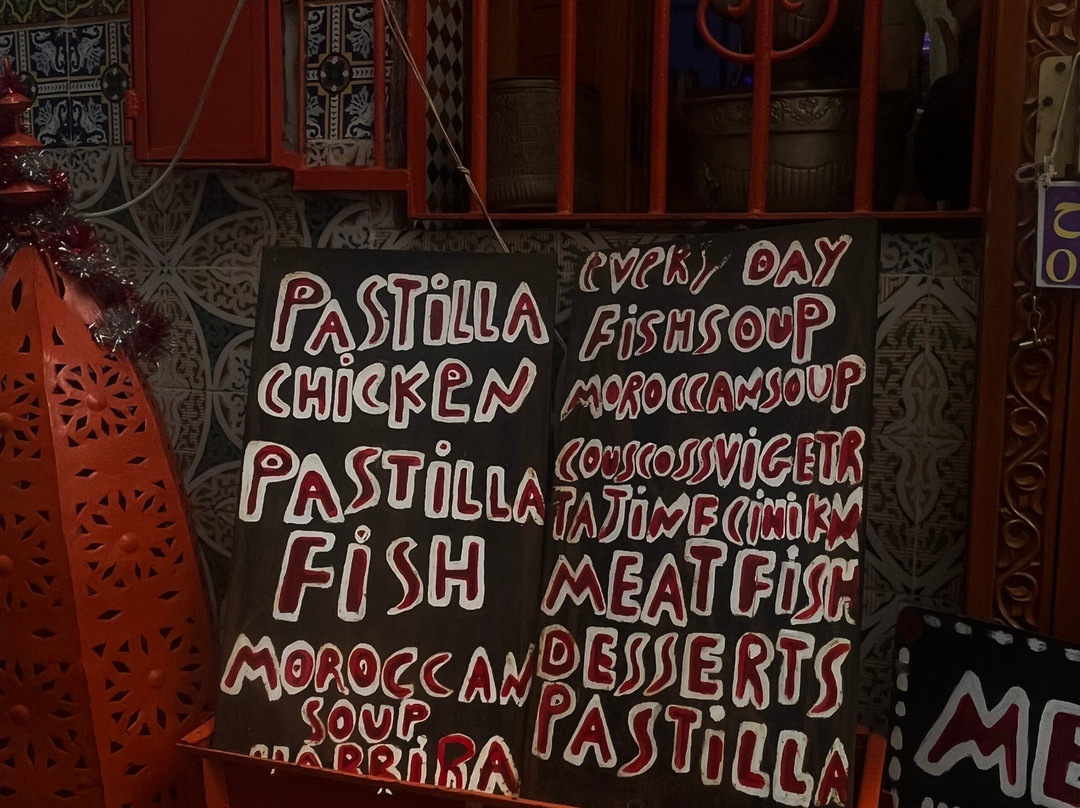 PASTiLLA
CHiCKEN
PASTiLLA
FiSH
MOROCCAN
SOUP
HARRiRA
EVERY DAY
FiSHSOUP
MOROCCANSOUP
COUSCOSSViGETR
TAJiNE CiHiKN
MEATFiSH
DESSERTS
PASTiLLA
ME